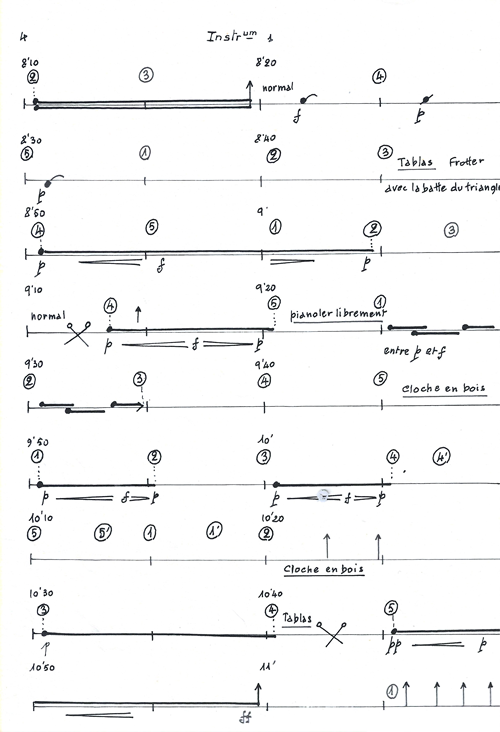 4 Instrum 1
8'10 8'20
② ③ normal ④
f p
8'30 8'40
⑤ ① ② ③ Tablas Frotter
p avec la batte du triangle
8'50 9'
④ ⑤ ① ② ③
p f p
9'10 9'20
normal ④ ⑤ pianoler librement ①
p f p entre p et f
9'30 9'40
② ③ ④ ⑤ Cloche en bois
9'50 10'
① ② ③ ④ ④'
p f p p f p
10'10 10'20
⑤ ⑤' ① ①' ②
Cloche en bois
10'30 10'40
③ ④ Tablas ⑤
p pp p
10'50 11'
①
ff